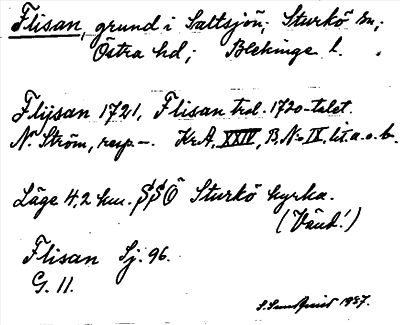 Flisan, grund i Saltsjön; Sturkö sn;
Östra hd; Blekinge l.
Flijsan 1721, Flisan trol. 1720-talet.
N. Ström, resp -. KrA, XXIV, B, No IX, lit. a. o. b.
Läge 4,2 km. SSÖ Sturkö kyrka.
(Vänd!)
Flisan Sj. 96.
G. 11.
1937.